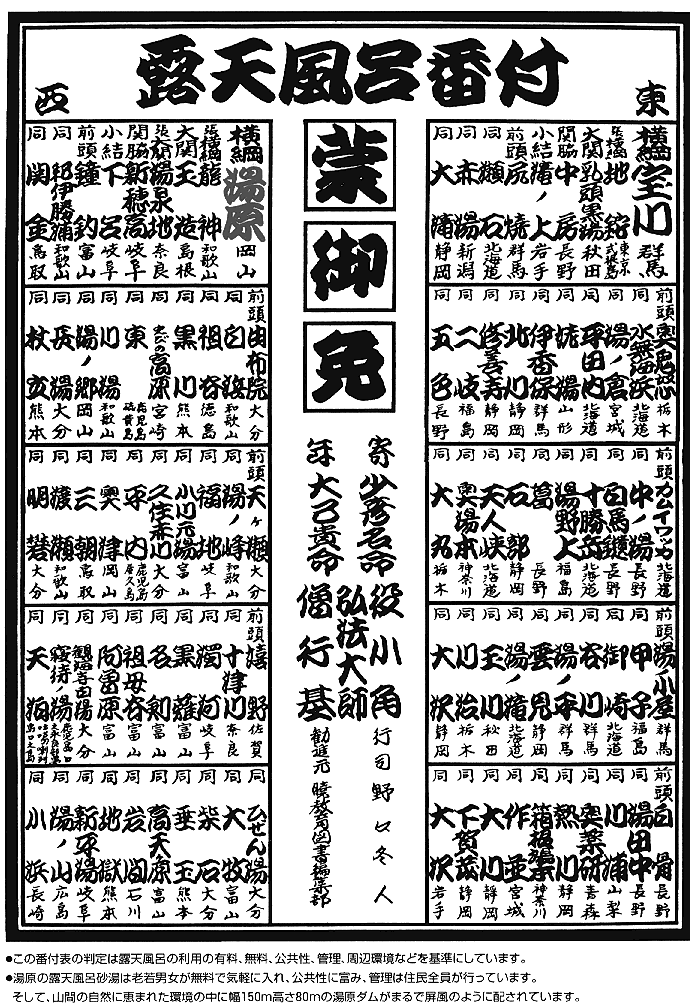 露天風呂番付
東
横綱 宝川 群馬
張横綱 地鉈 東京式根島
大関 乳頭黒湯 秋田
関脇 中房 長野
小結 滝ノ上 岩手
前頭 尻焼 群馬
同 瀬石 北海道
同 赤湯 新潟
同 大滝 静岡
前頭 奥鬼怒 栃木
同 水無海浜 北海道
同 湯ノ倉 宮城
同 平田内 北海道
同 姥湯 山形
同 伊香保 群馬
同 北川 静岡
同 修善寺 静岡
同 二岐 福島
同 五色 長野
前頭 カムイワッカ 北海道
同 中ノ湯 長野
同 白馬鑓 長野
同 十勝岳 北海道
同 湯野上 福島
同 葛 長野
同 石部 静岡
同 天人峡 北海道
同 奥湯本 神奈川
同 大丸 栃木
前頭 湯ノ小屋 群馬
同 甲子 福島
同 御崎 北海道
同 谷川 群馬
同 湯ノ平 群馬
同 雲見 静岡
同 湯ノ滝 北海道
同 玉川 秋田
同 川治 栃木
同 大沢 静岡
前頭 白骨 長野
同 湯田中 長野
同 川浦 山梨
同 奥薬研 青森
同 熱川 静岡
同 神奈川
同 作並 宮城
同 大川 静岡
同 下賀茂 静岡
同 大沢 岩手
蒙御免
寄 少彦名命
年 大己貴命
役小角
弘法大師
僧行基
行司 野口冬人
勧進元 図書編集部
西
横綱 湯原 岡山
張横綱 龍神 和歌山
大関 玉造 島根
張大関 湯泉地 奈良
関脇 新穂高 岐阜
小結 下呂 岐阜
前頭 鐘釣 富山
同 紀伊勝浦 和歌山
同 関金 鳥取
前頭 由布院 大分
同 白浜 和歌山
同 祖谷 徳島
同 黒川 熊本
同 えびの高原 宮崎
同 東 鹿児島硫黄島
同 川湯 和歌山
同 湯ノ郷 岡山
同 長湯 大分
同 杖立 熊本
前頭 天ヶ瀬 大分
同 湯ノ峰 和歌山
同 福地 岐阜
同 小川元湯 富山
同 久住赤川 大分
同 平内 鹿児島屋久島
同 奥津 岡山
同 三朝 鳥取
同 渡瀬 和歌山
同 明礬 大分
前頭 嬉野 佐賀
同 十津川 奈良
同 濁河 岐阜
同 黒薙 富山
同 名剣 富山
同 祖母谷 富山
同 阿曽原 富山
同 大分
同 寝待ノ湯
同
前頭 ひぜん湯 大分
同 大牧 富山
同 柴石 大分
同 垂玉 熊本
同 高天原 富山
同 岩間 石川
同 地獄 熊本
同 新平湯 岐阜
同 湯ノ山 広島
同 小浜 長崎
●この番付表の判定は露天風呂の利用の有料、無料、公共性、管理、周辺環境などを基準にしています。
●湯原の露天風呂砂湯は老若男女が無料で気軽に入れ、公共性に富み、管理は住民全員が行っています。
そして、山間の自然に恵まれた環境の中に幅150m高さ80mの湯原ダムがまるで屏風のように配されています。